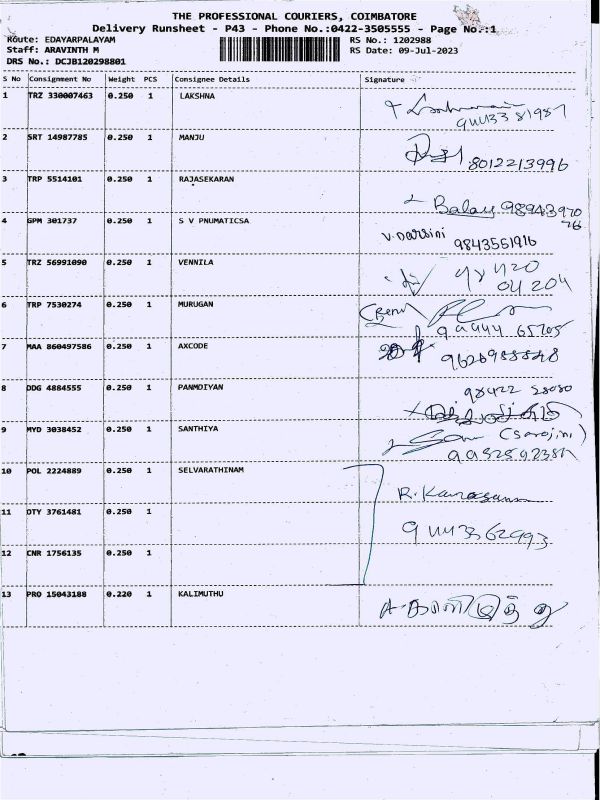 THE PROFESSIONAL COURIERS, COIMBATORE
Delivery Runsheet - P43 - Phone No.:0422-3505555 - Page No.:1
Route: EDAYARPALAYAM
RS No.: 1202988
Staff: ARAVINTH M
RS Date: 09-Jul-2023
DRS No.: DCJB120298801
S No Consignment No Weight PCS Consignee Details Signature
1 TRZ 330007463 0.250 1 LAKSHNA
2 SRT 14987785 0.250 1 MANJU
8012213996
3 TRP 5514101 0.250 1 RAJASEKARAN
Balay 98943970
76
4 GPM 301737 0.250 1 S V PNUMATICSA
V. Darsini
9843551916
5 TRZ 56991090 0.250 1 VENNILA
98420
04204
6 TRP 7530274 0.250 1 MURUGAN
99444 65705
7 MAA 860497586 0.250 1 AXCODE
8 DDG 4884555 0.250 1 PANMDIYAN
98422 28080
9 MYD 3038452 0.250 1 SANTHIYA
(Sarojini)
10 POL 2224889 0.250 1 SELVARATHINAM
11 OTY 3761481 0.250 1
9443362993
12 CNR 1756135 0.250 1
13 PRO 15043188 0.220 1 KALIMUTHU